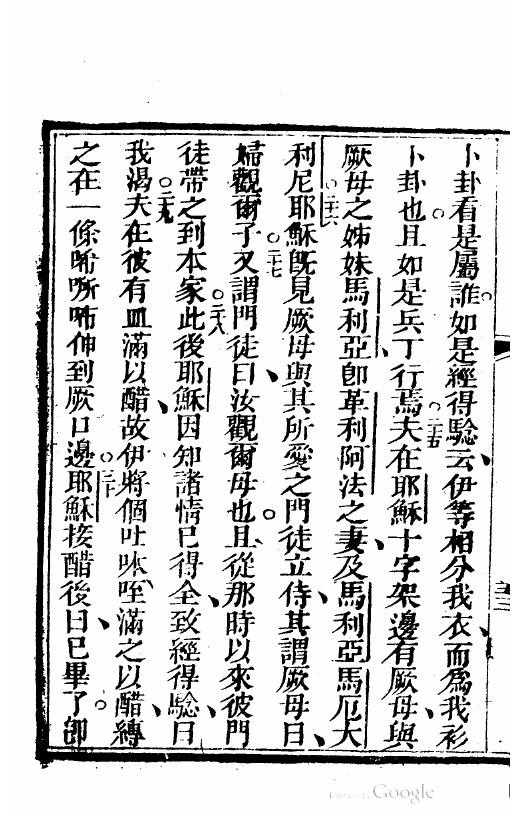 卜卦看是屬誰○如是經得驗云伊等相分我衣而爲我衫
卜卦也且如是兵丁行焉○二十五夫在耶穌十字架邊有厥母與
厥母之姊妹馬利亞卽革利阿法之妻及馬利亞馬厄大
利尼○二十六耶穌旣見厥母與其所愛之門徒立侍其謂厥母曰
婦觀爾子○二十七又謂門徒曰汝觀爾母也○且從那時以來彼門
徒帶之到本家○二十八此後耶穌因知諸情已得全致經得驗曰
我渴○二十九夫在彼有皿滿以醋故伊將個吐咻㗌滿之以醋縳
之在一條唏㗭咘伸到厥口邊○三十耶穌接醋後曰已畢了○卽
三三
Digitized by Google